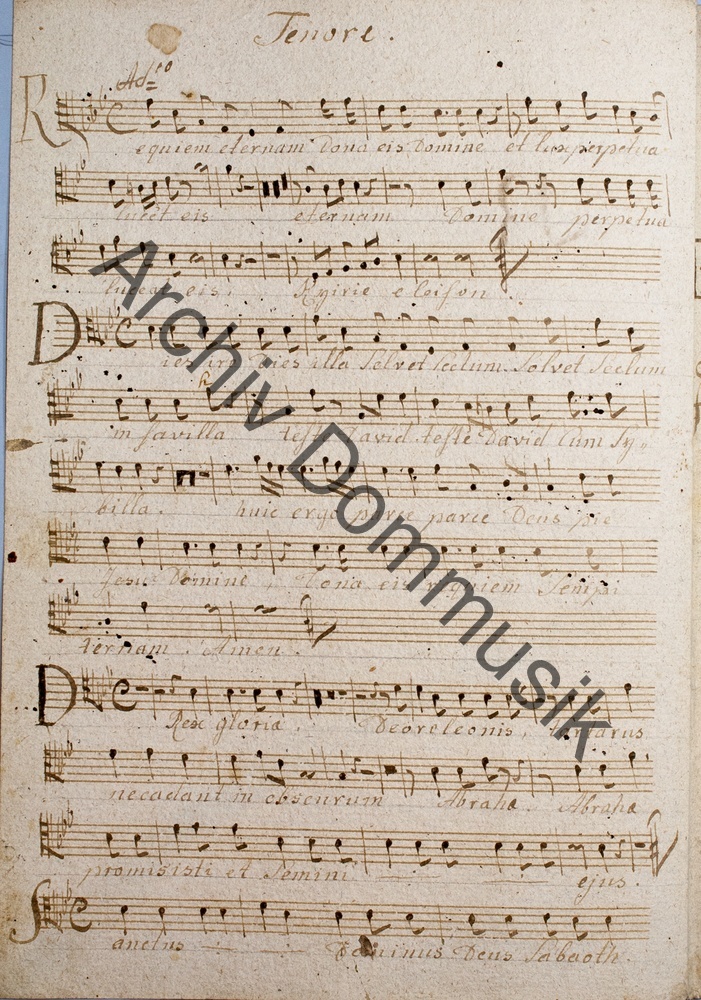 Tenore.
Ad=io
Requiem eternam Dona eis Domine et lux perpetua
lucet eis eternam Domine perpetua
luceat eis. Kyirie eleison.
Dies illa Solvet Seclum. Solvet Seclum
in favilla teste David teste David Cum Sy=
billa. huic ergo parce parce Deus pie
Jesu Domine, Dona eis requiem Sempi
ternam. Amen.
D Rex gloria. De ore leonis, tartarus
necadant in obscurum Abraha. Abraha
promisisti et Semini ejus.
Sanctus Dominus Deus Sabaoth.
Archiv Dommusik